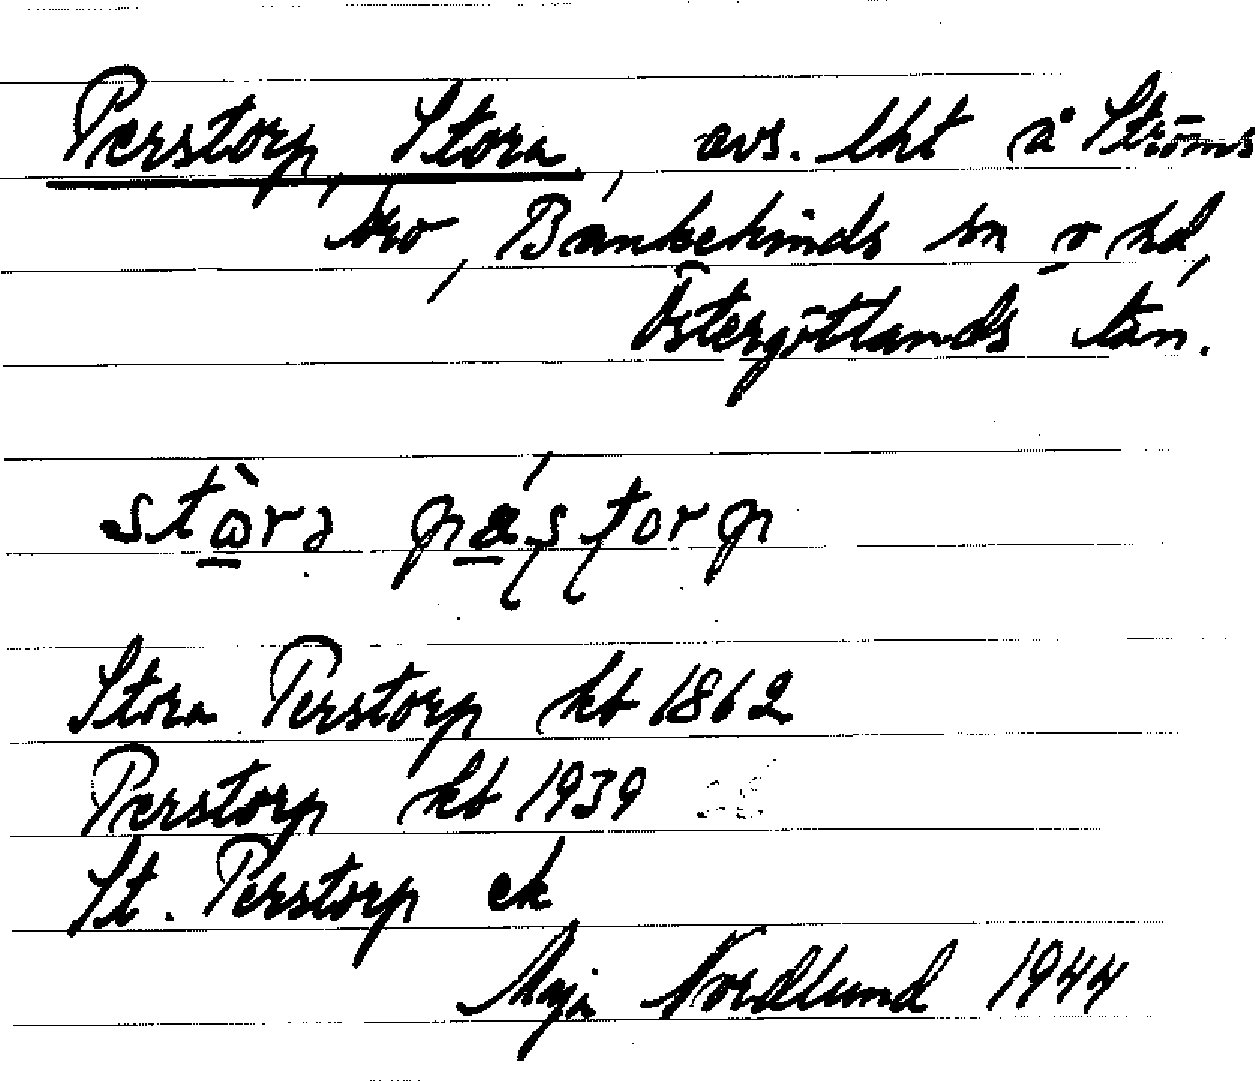 Perstorp, Stora, avs. lht å Ströms
bro, Bankekinds sn o hd,
Östergötlands län.
stɷ̀ra pǽştorp
Stora Perstorp kb 1862
Perstorp kb 1939
St. Perstorp ek
Maja Nordlund 1944